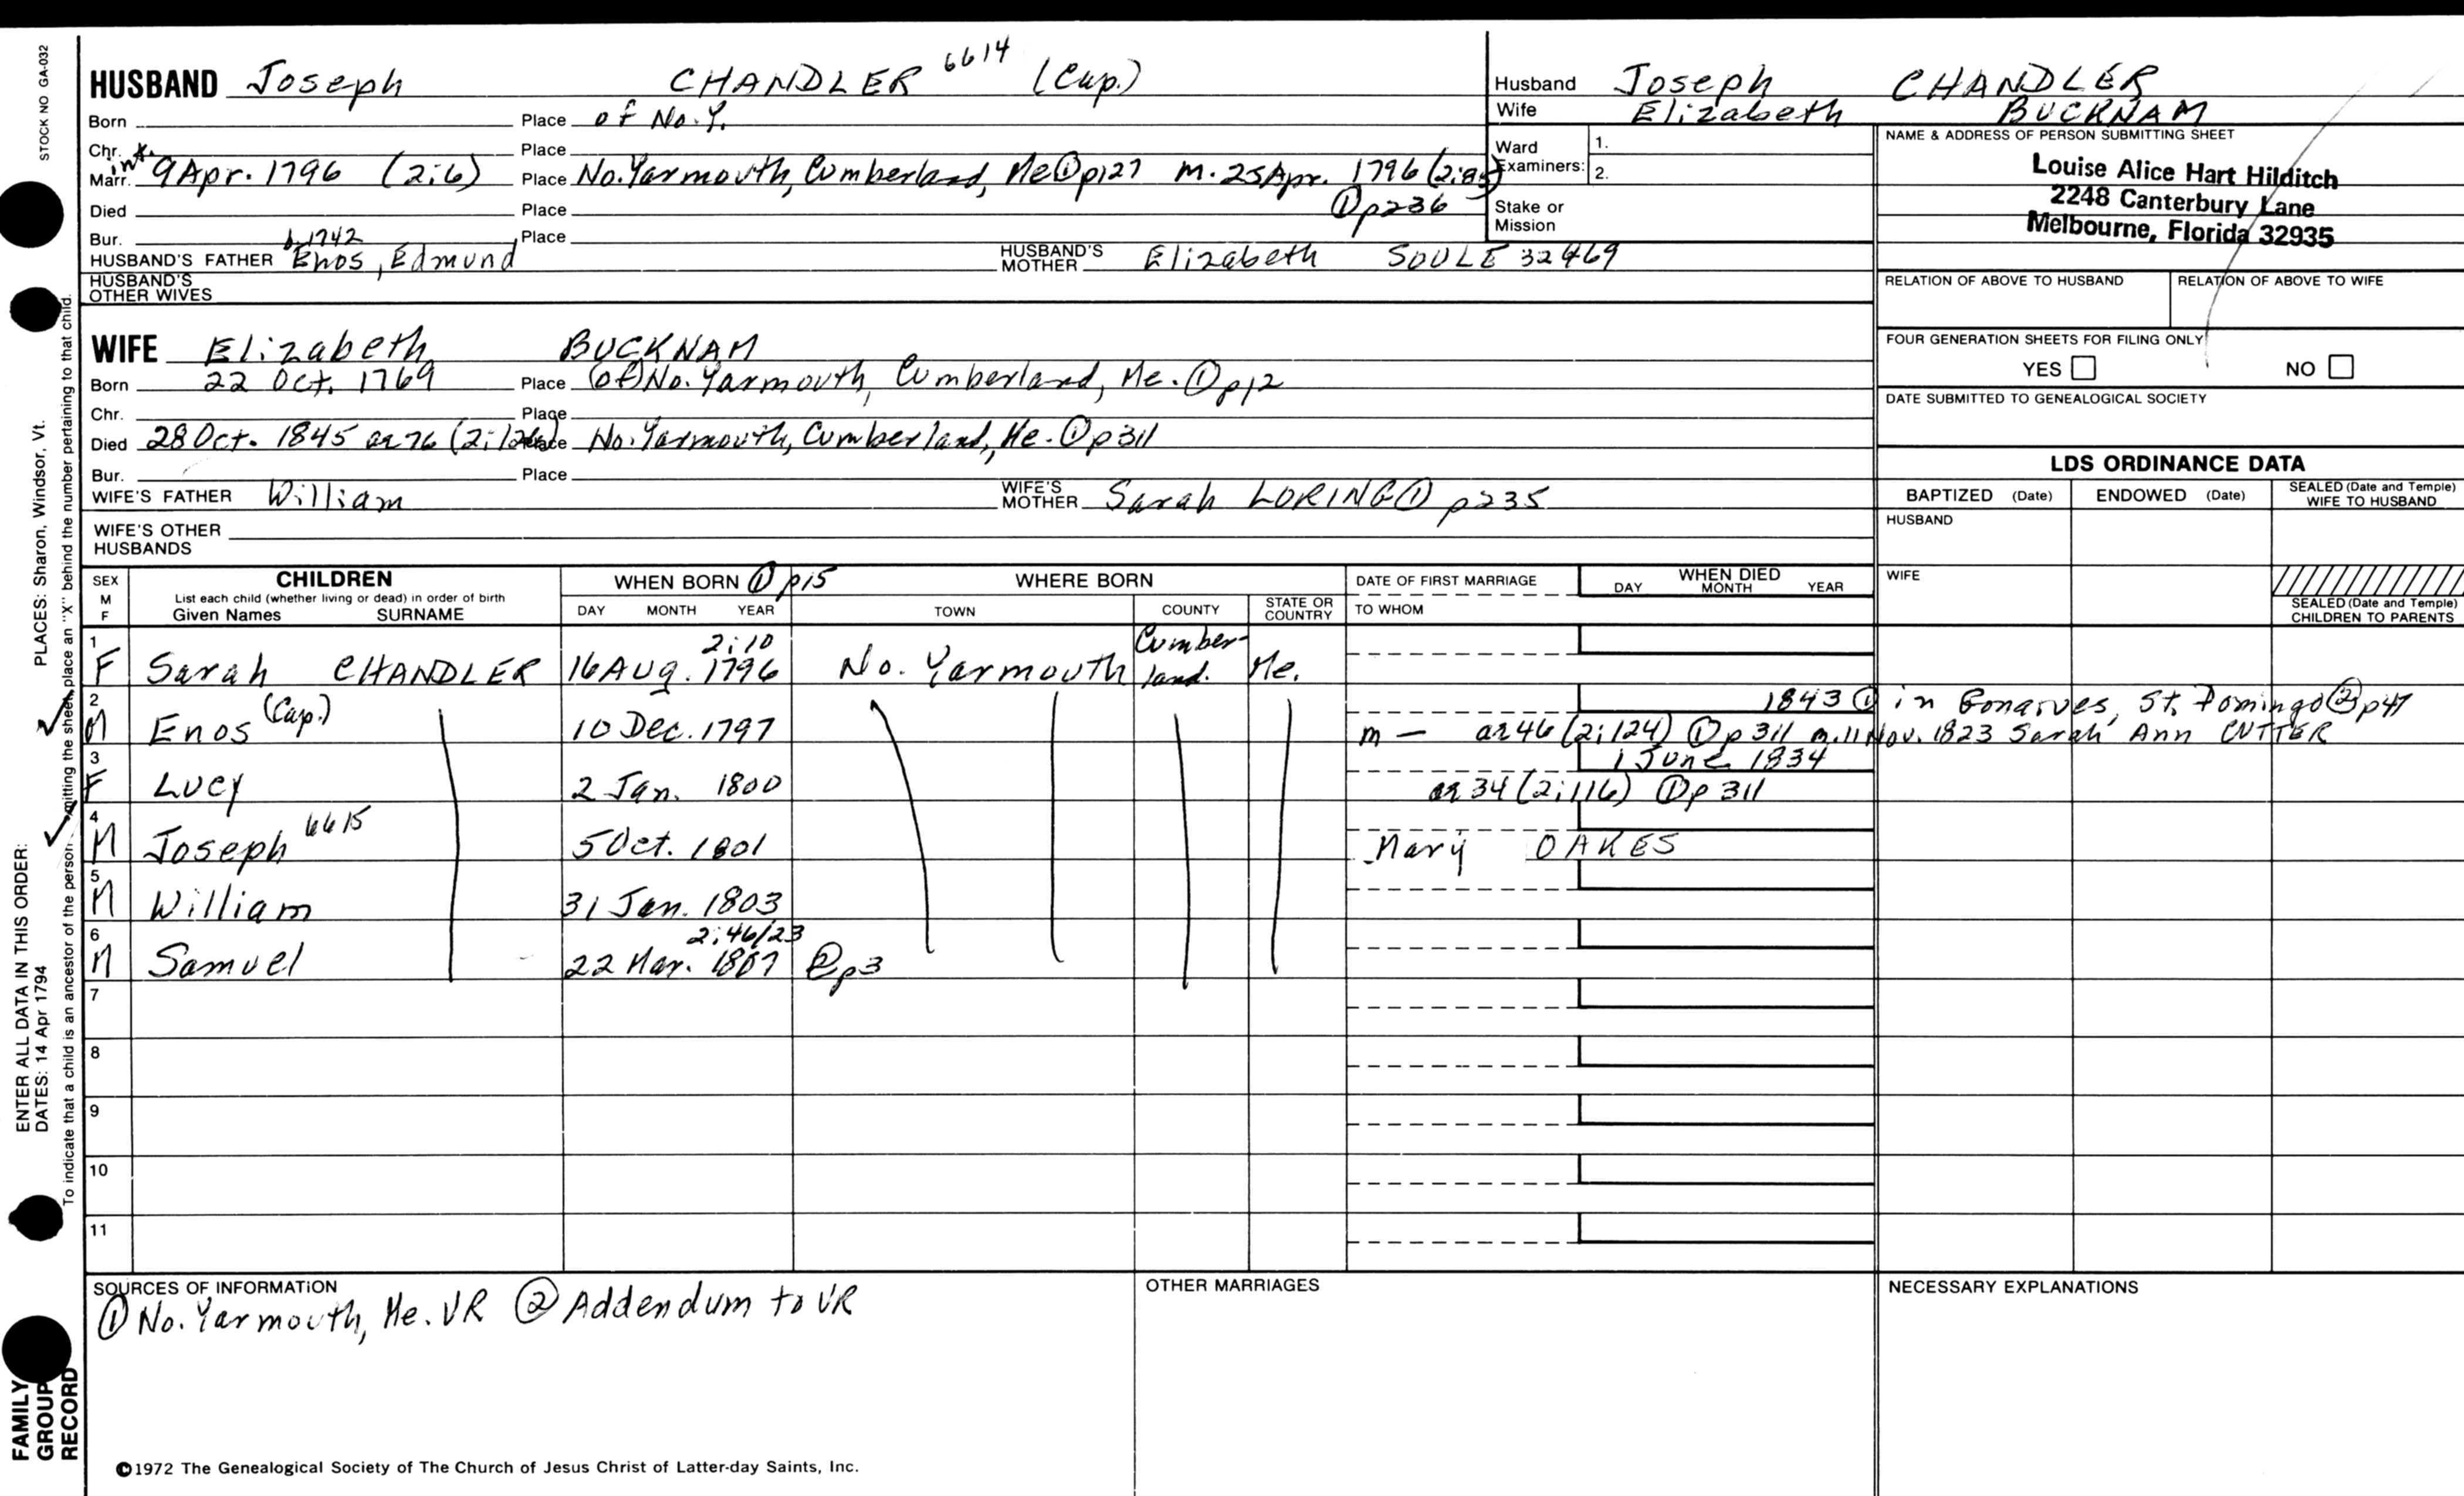 STOCK NO GA-032
PLACES: Sharon, Windsor, Vt.
ENTER ALL DATA IN THIS ORDER:
DATES: 14 Apr 1794
To indicate that a child is an ancestor of the person submitting the sheet, place an "X" behind the number pertaining to that child.
FAMILY GROUP RECORD
HUSBAND Joseph CHANDLER 6614 (Cap.)
Born Place of No. Y.
Chr. Place
int.
Marr. 9 Apr. 1796 (2:6) Place No. Yarmouth, Cumberland, Me ① p127 m. 25 Apr. 1796
① p236
Died Place
Bur. Place
b 1742
HUSBAND'S FATHER Enos, Edmund HUSBAND'S MOTHER Elizabeth SOULE 32469
HUSBAND'S OTHER WIVES
WIFE Elizabeth BUCKNAM
Born 22 Oct. 1769 Place (of) No. Yarmouth, Cumberland, Me. ① p12
Chr. Place
Died 28 Oct. 1845 ae 76 Place No. Yarmouth, Cumberland, Me. ① p311
Bur. Place
WIFE'S FATHER William WIFE'S MOTHER Sarah LORING ① p235
WIFE'S OTHER HUSBANDS
Husband Joseph CHANDLER
Wife Elizabeth BUCKNAM
Ward Examiners: 1. 2.
Stake or Mission
NAME & ADDRESS OF PERSON SUBMITTING SHEET
Louise Alice Hart Hilditch
2248 Canterbury Lane
Melbourne, Florida 32935
RELATION OF ABOVE TO HUSBAND RELATION OF ABOVE TO WIFE
FOUR GENERATION SHEETS FOR FILING ONLY
YES NO
DATE SUBMITTED TO GENEALOGICAL SOCIETY
LDS ORDINANCE DATA
BAPTIZED (Date) ENDOWED (Date) SEALED (Date and Temple) WIFE TO HUSBAND
HUSBAND
WIFE
SEALED (Date and Temple) CHILDREN TO PARENTS
SEX M F CHILDREN WHEN BORN ① p15 WHERE BORN DATE OF FIRST MARRIAGE WHEN DIED
List each child (whether living or dead) in order of birth
Given Names SURNAME DAY MONTH YEAR TOWN COUNTY STATE OR COUNTRY TO WHOM DAY MONTH YEAR
2:10
1 F Sarah CHANDLER 16 Aug. 1796 No. Yarmouth Cumberland. Me.
1843 ① in Gonaives, St. Domingo ② p47
2 M Enos (Cap.) 10 Dec. 1797 m — ae 46 (2:124) ① p311 m. 11 Nov. 1823 Sarah Ann CUTTER
1 June 1834
3 F Lucy 2 Jan. 1800 ae 34 (2:116) ① p311
4 M Joseph 6615 5 Oct. 1801 Mary OAKES
5 M William 31 Jan. 1803
2:46/23
6 M Samuel 22 Mar. 1807 ② p3
7
8
9
10
11
SOURCES OF INFORMATION OTHER MARRIAGES NECESSARY EXPLANATIONS
① No. Yarmouth, Me. VR ② Addendum to VR
©1972 The Genealogical Society of The Church of Jesus Christ of Latter-day Saints, Inc.